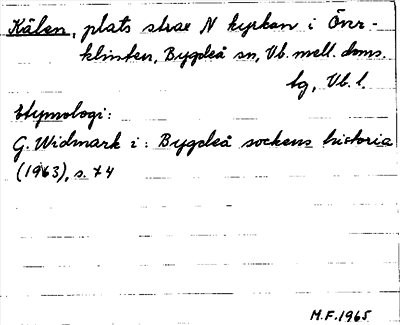 Kålen, plats strax N kyrkan i Önr-
klinten, Bygdeå sn, Vb. mell. doms.
tg, Vb. l.
Etymologi:
G. Widmark i: Bygdeå sockens historia
(1963), s. 74
M.F. 1965